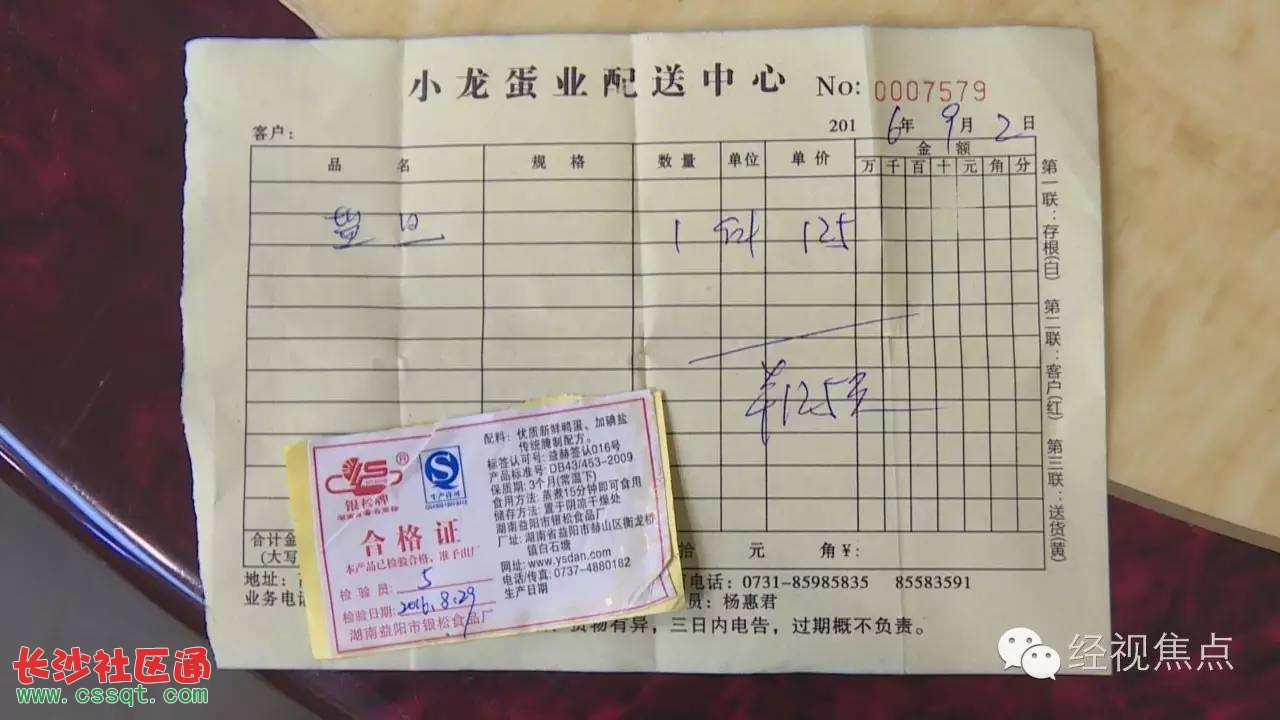 小龙蛋业配送中心 No: 0007579
客户: 2016年9月2日
品名 规格 数量 单位 单价 金额
万 千 百 十 元 角 分
1 125
125元
第一联:存根(白) 第二联:客户(红) 第三联:送货(黄)
合计金
(大写
拾 元 角¥:
地址:
电话: 0731-85985835 85583591
业务电话
员: 杨惠君
货物有异,三日内电告,过期概不负责。
银松牌®
QS
生产许可
合格证
本产品已检验合格、准予出厂
检验员: 5
检验日期: 2016.8.29
湖南益阳市银松食品厂
配料: 优质新鲜鸭蛋、加碘盐
传统腌制配方。
标签认可号: 益赫签认016号
产品标准号: DB43/453-2009
保质期: 3个月(常温下)
食用方法: 蒸煮15分钟即可食用
储存方法: 置于阴凉干燥处
湖南益阳市银松食品厂
厂址: 湖南省益阳市赫山区衡龙桥
镇白石塘
网址: www.ysdan.com
电话/传真: 0737-4880182
生产日期
长沙社区通
www.cssqt.com
经视焦点